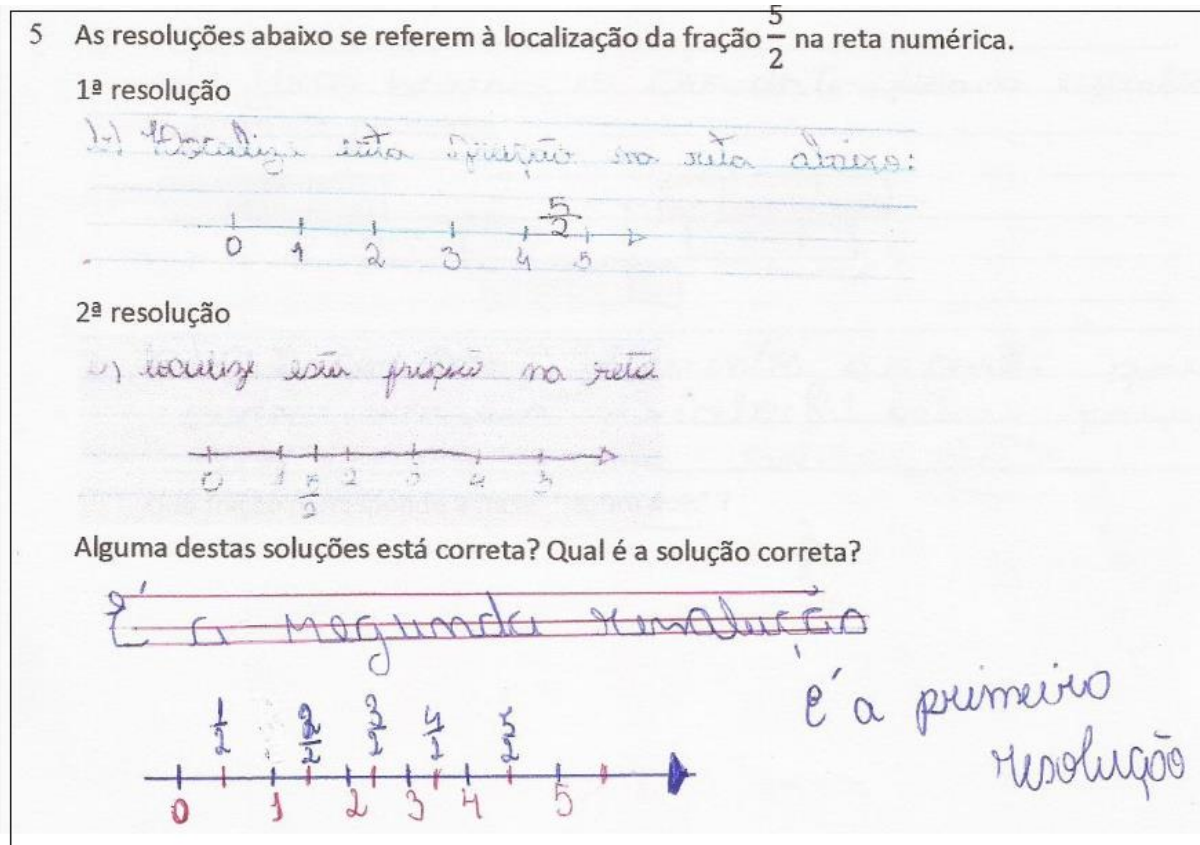 5 As resoluções abaixo se referem à localização da fração 5/2 na reta numérica.
1ª resolução
b) Localize esta fração na reta abaixo:
5/2
0 1 2 3 4 5
2ª resolução
localize esta fração na reta
0 1 5/2 2 3 4 5
Alguma destas soluções está correta? Qual é a solução correta?
É a segunda resolução
É a primeira
resolução
1/2 2/2 3/2 4/2 5/2
0 1 2 3 4 5